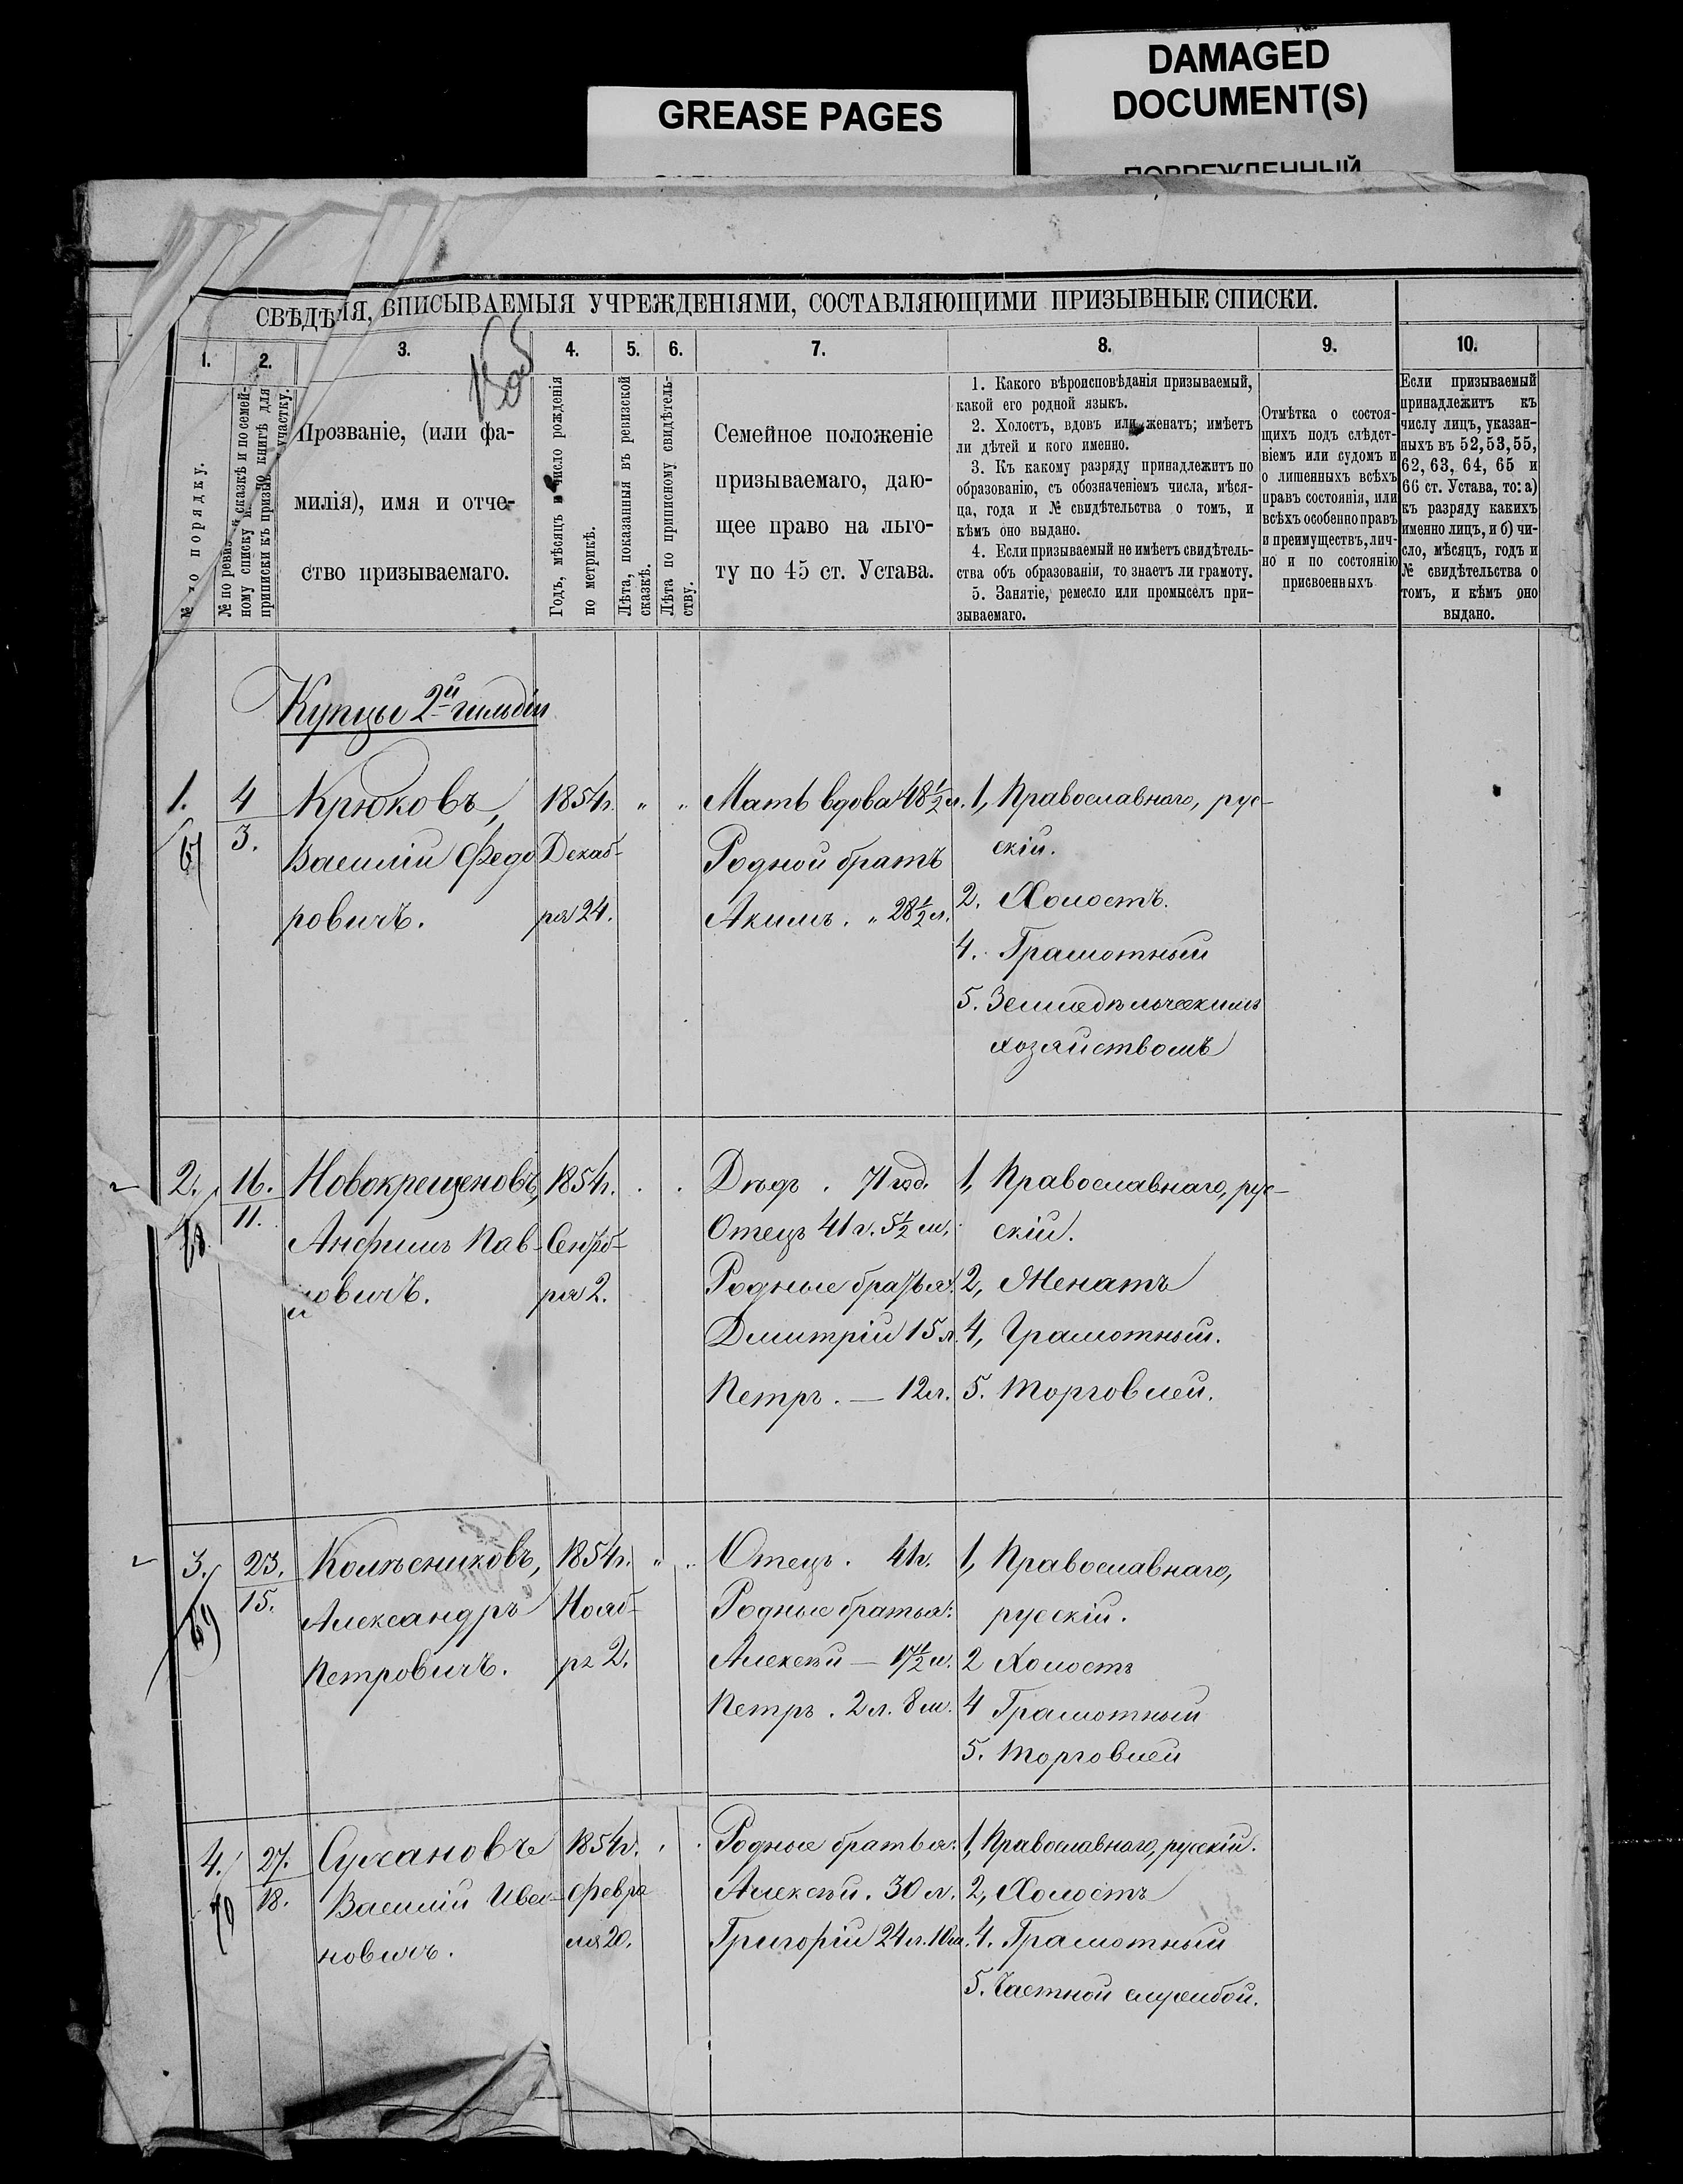 GREASE PAGES
DAMAGED
DOCUMENT(S)
ПОВРЕЖДЕННЫЙ
СВѢДѢ ІЯ, ВПИСЫВАЕМЫЯ УЧРЕЖДЕНІЯМИ, СОСТАВЛЯЮЩИМИ ПРИЗЫВНЫЕ СПИСКИ.
1.
2.
3.
4.
5.
6.
7.
8.
9.
10.
№ по порядку.
№ по ревиз. сказкѣ и по семей-
ному списку и по книгѣ для
приписки къ призыв. участку.
Прозваніе, (или фа-
милія), имя и отче-
ство призываемаго.
Годъ, мѣсяцъ и число рожденія
по метрикѣ.
Лѣта, показанныя въ ревизской
сказкѣ.
Лѣта по приписному свидѣтель-
ству.
Семейное положеніе
призываемаго, даю-
щее право на льго-
ту по 45 ст. Устава.
1. Какого вѣроисповѣданія призываемый,
какой его родной языкъ.
2. Холостъ, вдовъ или женатъ; имѣетъ
ли дѣтей и кого именно.
3. Къ какому разряду принадлежитъ по
образованію, съ обозначеніемъ числа, мѣся-
ца, года и № свидѣтельства о томъ, и
кѣмъ оно выдано.
4. Если призываемый не имѣетъ свидѣтель-
ства объ образованіи, то знаетъ ли грамоту.
5. Занятіе, ремесло или промыселъ при-
зываемаго.
Отмѣтка о состоя-
щихъ подъ слѣдст-
віемъ или судомъ и
о лишенныхъ всѣхъ
правъ состоянія, или
всѣхъ особенно правъ
и преимуществъ, лич-
но и по состоянію
присвоенныхъ
Если призываемый
принадлежитъ къ
числу лицъ, указан-
ныхъ въ 52, 53, 55,
62, 63, 64, 65 и
66 ст. Устава, то: а)
къ разряду какихъ
именно лицъ, и б) чи-
сло, мѣсяцъ, годъ и
№ свидѣтельства о
томъ, и кѣмъ оно
выдано.
Купцы 2й гильдіи
1.
67
4
3.
Крюковъ,
Василій Федо
ровичъ.
1854г.
Декаб-
ря 24.
" "
Мать вдова 48½ л.
Родной братъ
Акимъ. " 28½ л.
1, Православнаго, рус-
скій.
2. Холостъ.
4. Грамотный
5. Земледѣльческимъ
хозяйствомъ
2.
68.
16.
11.
Новокрещеновъ,
Анфимъ Пав-
ловичъ.
1854г.
Сентяб-
ря 2.
Дѣдъ. 71 год.
Отецъ 41 г. 5½ м.
Родные братья:
Дмитрій 15 л.
Петръ. — 12 л.
1, Православнаго, рус-
скій.
2, Женатъ
4, Грамотный.
5. Торговлей.
3.
69
23.
15.
Колѣсниковъ,
Александръ
Петровичъ.
1854г.
Нояб-
ря 2.
" "
Отецъ. 41г.
Родные братья:
Алексѣй — 17½ л.
Петръ. 2 л. 8 м.
1, Православнаго,
русскій.
2 Холостъ
4 Грамотный
5. Торговлей
4.
70
27.
18.
Сухановъ
Василій Ива-
новичъ.
1854г.
Февра
ля 20.
Родные братья:
Алексѣй. 30 л.
Григорій 24 л. 10 м.
1, Православнаго, русскій.
2, Холостъ
4. Грамотный
5. Частной службой.